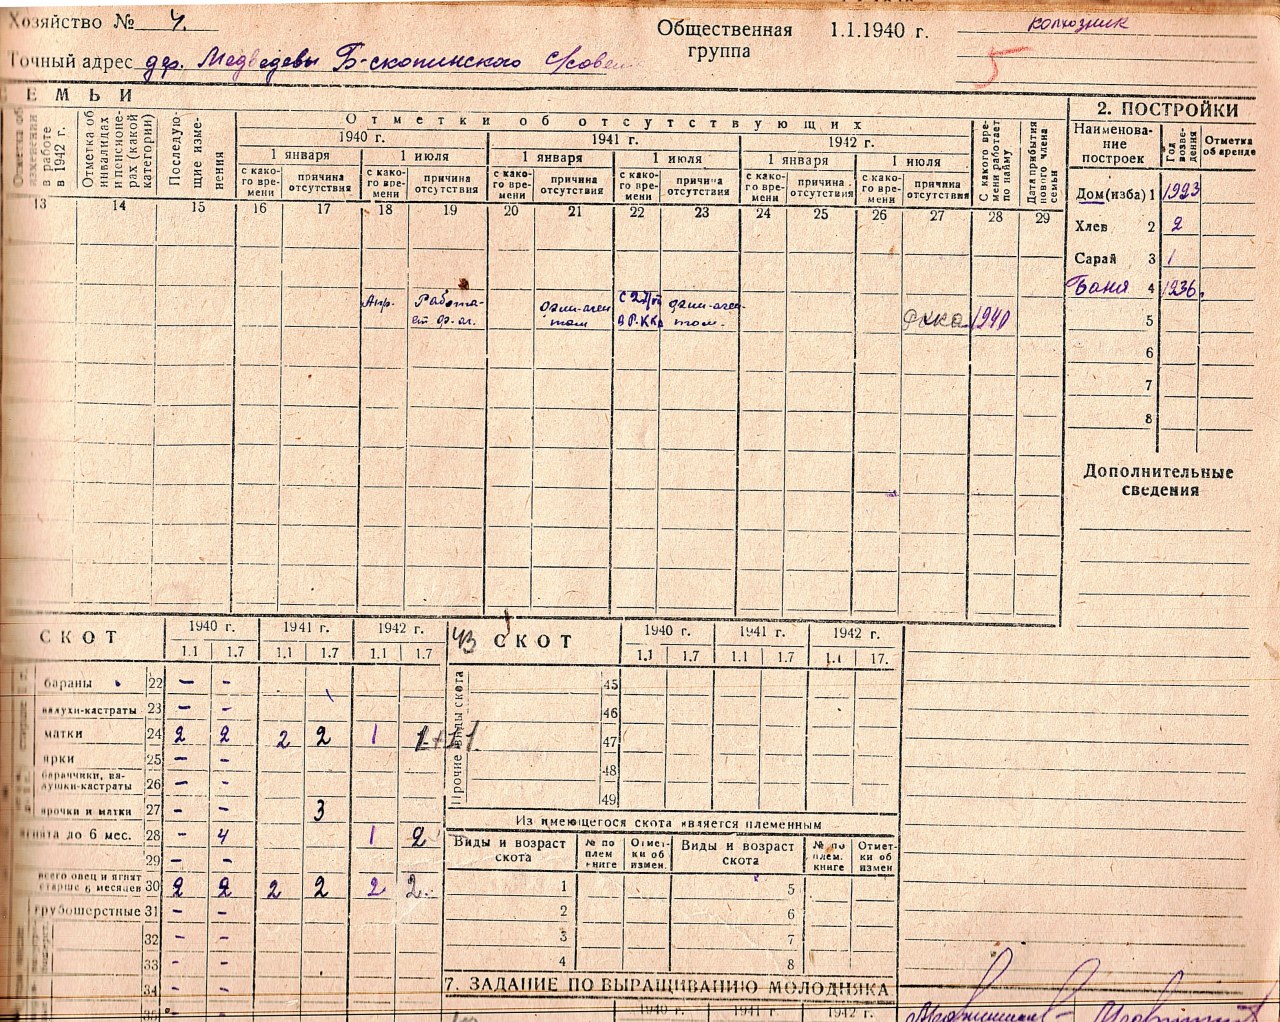 Хозяйство №
Общественная группа
1.1.1940 г.
колхозник
Точный адрес дер. Медведевы Б-скопинского с/сове
5
ЕМЬИ
в работе в 1942 г.
Отметка об инвалидах и пенсионерах (какой категории)
Последующие изменения
Отметки об отсутствующих
1940 г. 1941 г. 1942 г.
1 января 1 июля 1 января 1 июля 1 января 1 июля
с какого времени причина отсутствия с какого времени причина отсутствия с какого времени причина отсутствия с какого времени причина отсутствия с какого времени причина отсутствия с какого времени причина отсутствия
С какого времени работает по найму
Дата прибытия нового члена семьи
13 14 15 16 17 18 19 20 21 22 23 24 25 26 27 28 29
Апр. Работа-
1940
2. ПОСТРОЙКИ
Наименование построек
Год возведения
Отметка об аренде
Дом(изба) 1 1923
Хлев 2 2
Сарай 3 1
Баня 4 1936.
5
6
7
8
Дополнительные сведения
СКОТ
1940 г. 1941 г. 1942 г.
1.1 1.7 1.1 1.7 1.1 1.7
бараны 22 – –
валухи-кастраты 23 – –
матки 24 2 2 2 2 1
ярки 25 – –
баранчики, валушки-кастраты 26 – –
ярочки и матки 27 – – 3
ягнята до 6 мес. 28 – 4 1 2
29 – –
всего овец и ягнят старше 6 месяцев 30 2 2 2 2 2 2
грубошерстные 31 – –
32 – –
33 – –
34 – –
35
СКОТ
1940 г. 1941 г. 1942 г.
1.1 1.7 1.1 1.7 1.1 17.
Прочие виды скота
45
46
47
48
49
Из имеющегося скота является племенным
Виды и возраст скота № по плем книге Отметки об измен. Виды и возраст скота № по плем. книге Отметки об измен
1 5
2 6
3 7
4 8
7. ЗАДАНИЕ ПО ВЫРАЩИВАНИЮ МОЛОДНЯКА
1940 г. 1941 г. 1942 г.